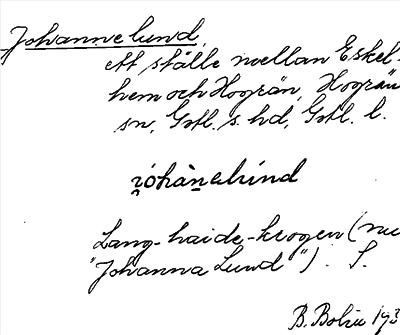 Johannelund,
ett ställe mellan Eskel-
hem och Hogrän, Hogrän
sn, Gotl. s. hd, Gotl. l.
Lang-haide-krogen (nu
"Johanna Lund"). S.
B. Bolin 193